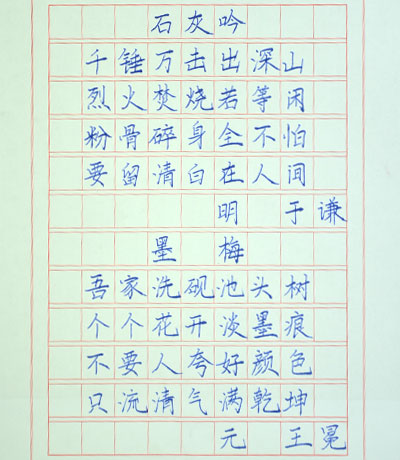 石灰吟
千锤万击出深山
烈火焚烧若等闲
粉骨碎身全不怕
要留清白在人间
明 于谦
墨 梅
吾家洗砚池头树
个个花开淡墨痕
不要人夸好颜色
只流清气满乾坤
元 王冕